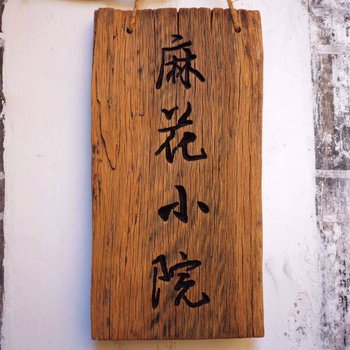 麻花小院